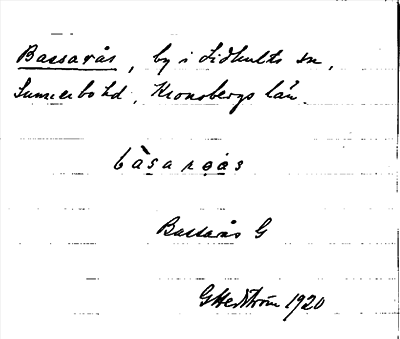 Bassarås, by i Lidhults sn,
Sunnerbo hd, Kronobergs län.
bàsarǫás
Bassarås G
GHedström 1920